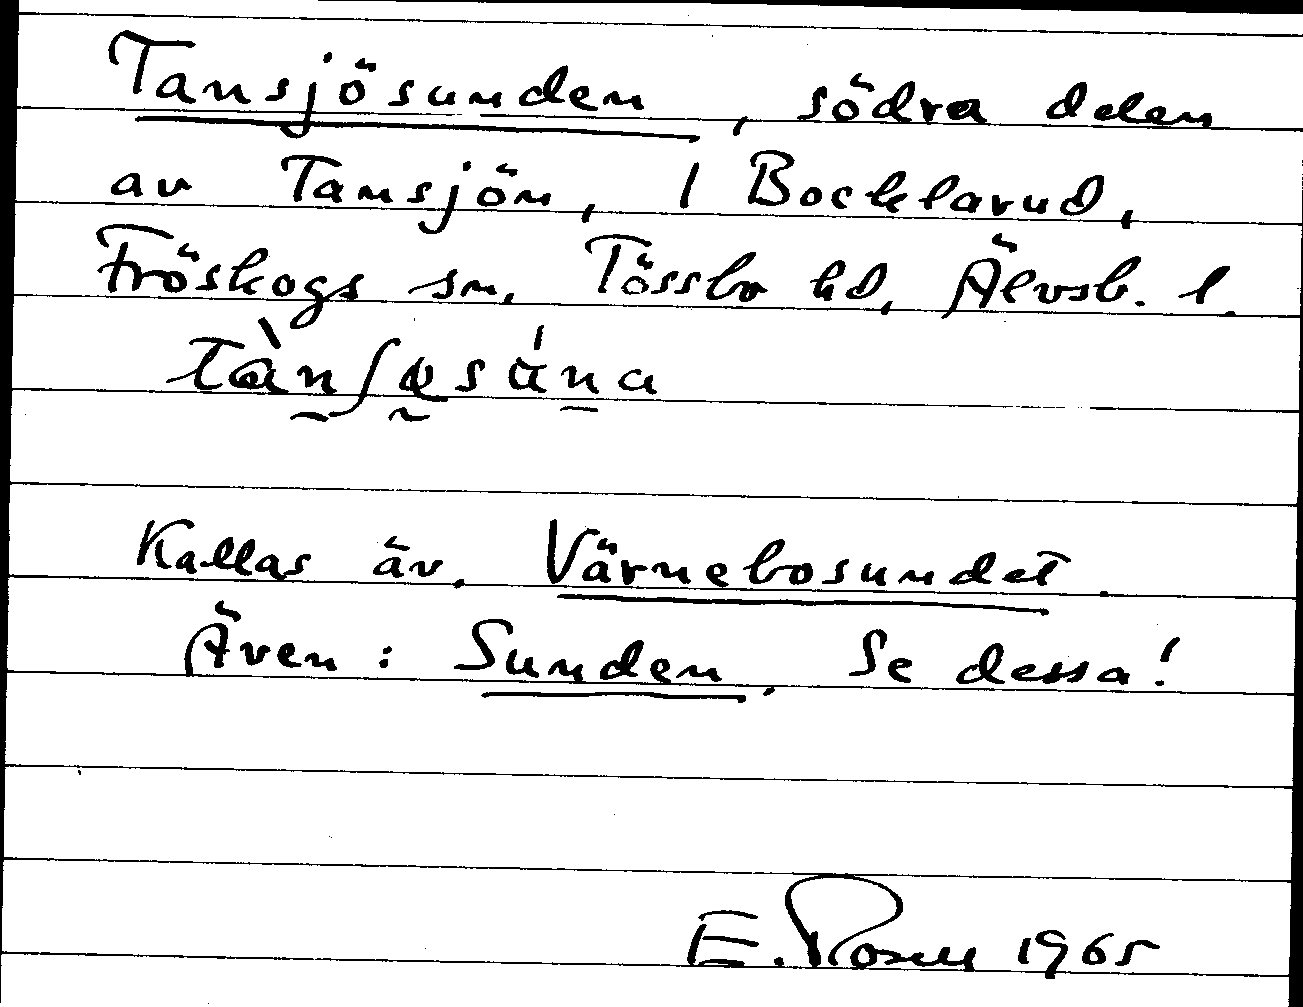 Tansjösunden, södra delen
av Tansjön, I Bocklarud,
Fröskogs sn, Tössbo hd, Älvsb. l.
Kallas äv. Värnebosundet.
Även: Sunden. Se dessa!
E. Rosell 1965